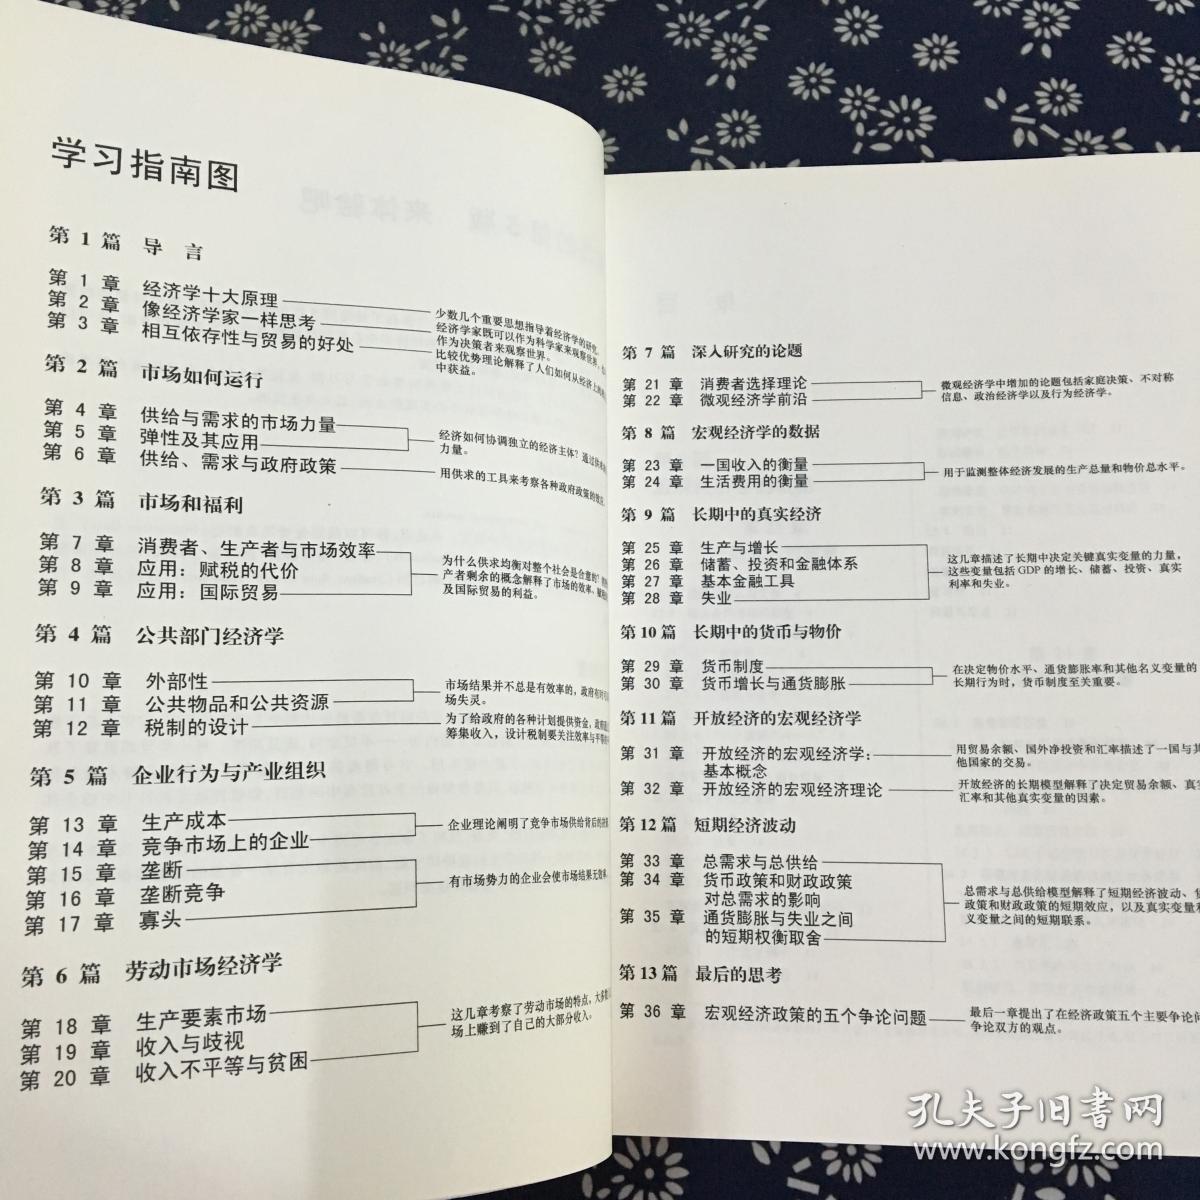 学习指南图
第 1 篇 导 言
第 1 章 经济学十大原理
第 2 章 像经济学家一样思考
第 3 章 相互依存性与贸易的好处
少数几个重要思想指导着经济学的研究。
经济学家既可以作为科学家来观察世界,也
作为决策者来观察世界。
比较优势理论解释了人们如何从经济上的
中获益。
第 2 篇 市场如何运行
第 4 章 供给与需求的市场力量
第 5 章 弹性及其应用
第 6 章 供给、需求与政府政策
经济如何协调独立的经济主体?通过供求
力量。
用供求的工具来考察各种政府政策的效应。
第 3 篇 市场和福利
第 7 章 消费者、生产者与市场效率
第 8 章 应用:赋税的代价
第 9 章 应用:国际贸易
为什么供求均衡对整个社会是合意的?
产者剩余的概念解释了市场的效率、赋税
及国际贸易的利益。
第 4 篇 公共部门经济学
第 10 章 外部性
第 11 章 公共物品和公共资源
第 12 章 税制的设计
市场结果并不总是有效率的,政府有时可
场失灵。
为了给政府的各种计划提供资金,政府
筹集收入,设计税制要关注效率与平等
第 5 篇 企业行为与产业组织
第 13 章 生产成本
第 14 章 竞争市场上的企业
第 15 章 垄断
第 16 章 垄断竞争
第 17 章 寡头
企业理论阐明了竞争市场供给背后的
有市场势力的企业会使市场结果无效率。
第 6 篇 劳动市场经济学
第 18 章 生产要素市场
第 19 章 收入与歧视
第 20 章 收入不平等与贫困
这几章考察了劳动市场的特点,大多数
场上赚到了自己的大部分收入。
第 7 篇 深入研究的论题
第 21 章 消费者选择理论
第 22 章 微观经济学前沿
微观经济学中增加的论题包括家庭决策、不对称
信息、政治经济学以及行为经济学。
第 8 篇 宏观经济学的数据
第 23 章 一国收入的衡量
第 24 章 生活费用的衡量
用于监测整体经济发展的生产总量和物价总水平。
第 9 篇 长期中的真实经济
第 25 章 生产与增长
第 26 章 储蓄、投资和金融体系
第 27 章 基本金融工具
第 28 章 失业
这几章描述了长期中决定关键真实变量的力量,
这些变量包括 GDP 的增长、储蓄、投资、真实
利率和失业。
第 10 篇 长期中的货币与物价
第 29 章 货币制度
第 30 章 货币增长与通货膨胀
在决定物价水平、通货膨胀率和其他名义变量的
长期行为时,货币制度至关重要。
第 11 篇 开放经济的宏观经济学
第 31 章 开放经济的宏观经济学:
基本概念
第 32 章 开放经济的宏观经济理论
用贸易余额、国外净投资和汇率描述了一国与其
他国家的交易。
开放经济的长期模型解释了决定贸易余额、真实
汇率和其他真实变量的因素。
第 12 篇 短期经济波动
第 33 章 总需求与总供给
第 34 章 货币政策和财政政策
对总需求的影响
第 35 章 通货膨胀与失业之间
的短期权衡取舍
总需求与总供给模型解释了短期经济波动、货
政策和财政政策的短期效应,以及真实变量和
义变量之间的短期联系。
第 13 篇 最后的思考
第 36 章 宏观经济政策的五个争论问题
最后一章提出了在经济政策五个主要争论问
争论双方的观点。
孔夫子旧书网
www.kongfz.com